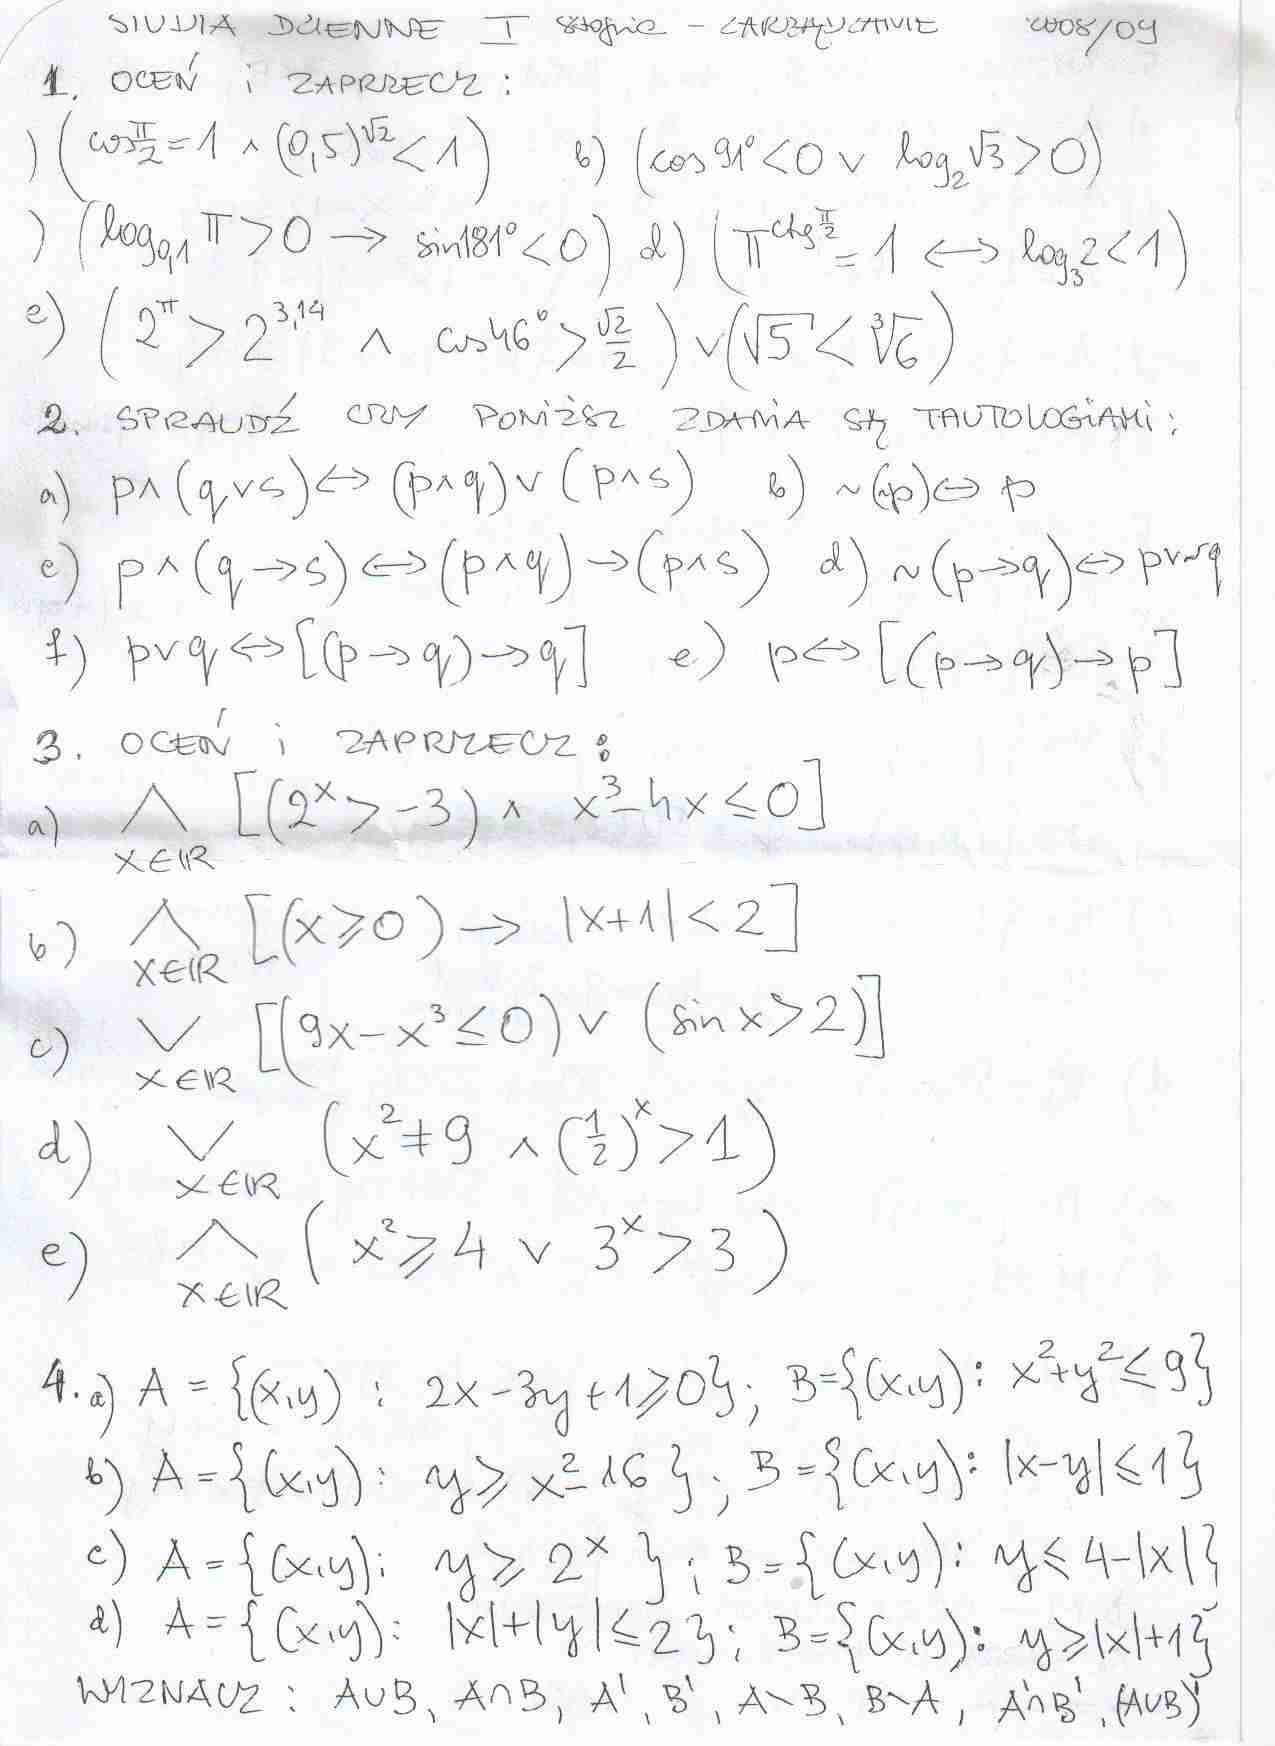 STUDIA DZIENNE I stopnia - ZARZĄDZANIE 2008/09
1. OCEŃ i ZAPRZECZ:
) (cos π/2 = 1 ∧ (0,5)^√2 < 1) b) (cos 91° < 0 ∨ log₂√3 > 0)
) (log₀,₁ π > 0 → sin 181° < 0) d) (π^(ctg π/2) = 1 ↔ log₃2 < 1)
e) (2^π > 2^3,14 ∧ cos 46° > √2/2) ∨ (√5 < ∛6)
2. SPRAWDŹ CZY PONIŻSZ ZDANIA SĄ TAUTOLOGIAMI:
a) p∧(q∨s)⇔(p∧q)∨(p∧s) b) ~(~p)⇔p
c) p∧(q→s)⇔(p∧q)→(p∧s) d) ~(p→q)⇔p∨~q
f) p∨q⇔[(p→q)→q] e) p⇔[(p→q)→p]
3. OCEŃ i ZAPRZECZ:
a) ⋀ [(2^x > -3) ∧ x³-4x ≤ 0]
x∈ℝ
b) ⋀ [(x ≥ 0) → |x+1| < 2]
x∈ℝ
c) ⋁ [(9x-x³ ≤ 0) ∨ (sin x > 2)]
x∈ℝ
d) ⋁ (x² ≠ 9 ∧ (1/2)^x > 1)
x∈ℝ
e) ⋀ (x² ≥ 4 ∨ 3^x > 3)
x∈ℝ
4. a) A = {(x,y) : 2x-3y+1 ≥ 0}; B={(x,y): x²+y² ≤ 9}
b) A = {(x,y): y ≥ x²-16}; B = {(x,y): |x-y| ≤ 1}
c) A = {(x,y): y ≥ 2^x}; B = {(x,y): y ≤ 4-|x|}
d) A = {(x,y): |x|+|y| ≤ 2}; B={(x,y): y ≥ |x|+1}
WYZNACZ : A∪B, A∩B, A', B', A∖B, B∖A, A'∩B', (A∪B)'